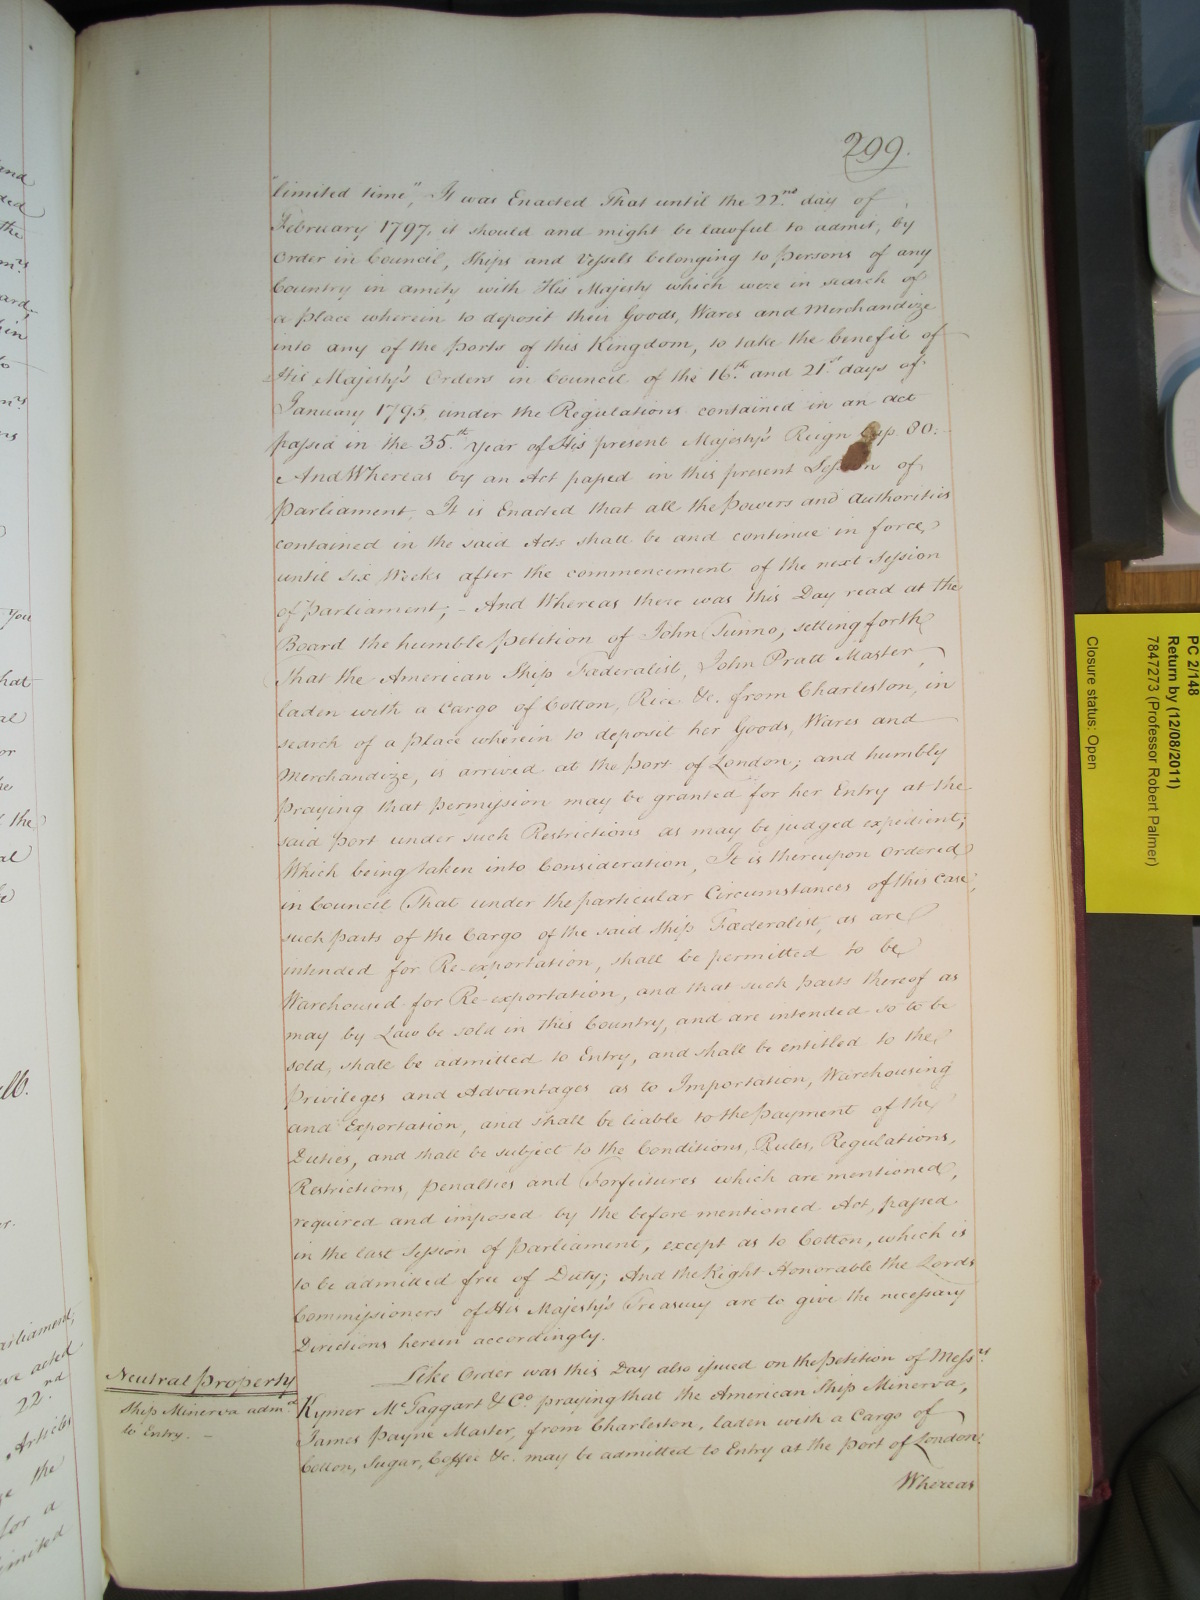 299.
"limited time", It was Enacted That until the 22.nd day of
February 1797, it should and might be lawful to admit, by
Order in Council, Ships and Vessels belonging to Persons of any
Country in amity with His Majesty which were in search of
a Place wherein to deposit their Goods, Wares and Merchandize
into any of the Ports of this Kingdom, to take the benefit of
His Majesty's Orders in Council of the 16.th and 21.st days of
January 1795 under the Regulations contained in an act
passed in the 35.th Year of His present Majesty's Reign Cap. 80.
And Whereas by an Act passed in this present Session of
Parliament, It is Enacted that all the Powers and Authorities
contained in the said Acts shall be and continue in force
until six Weeks after the commencement of the next Session
of Parliament; - And Whereas there was this Day read at the
Board the humble Petition of John Tunno, setting forth
That the American Ship Fœderalist, John Pratt Master,
laden with a Cargo of Cotton, Rice &c. from Charleston, in
search of a Place wherein to deposit her Goods, Wares and
Merchandize, is arrived at the Port of London; and humbly
praying that permission may be granted for her Entry at the
said Port under such Restrictions as may be judged expedient;
Which being taken into Consideration, It is thereupon Ordered
in Council That under the particular Circumstances of this Case,
such parts of the Cargo of the said Ship Fœderalist, as are
intended for Re-exportation, shall be permitted to be
Warehoused for Re-exportation, and that such parts thereof as
may by Law be sold in this Country, and are intended so to be
sold, shall be admitted to Entry, and shall be entitled to the
Privileges and Advantages as to Importation, Warehousing
and Exportation, and shall be liable to the Payment of the
Duties, and shall be subject to the Conditions, Rules, Regulations,
Restrictions, Penalties and Forfeitures which are mentioned,
required and imposed by the before mentioned Act, passed
in the last Session of Parliament, except as to Cotton, which is
to be admitted free of Duty; And the Right Honorable the Lords
Commissioners of His Majesty's Treasury are to give the necessary
Directions herein accordingly.
Neutral Property
Ship Minerva adm.d
to Entry. -
Like Order was this Day also issued on the Petition of Mess.rs
Kymer McTaggart & Co. praying that the American Ship Minerva,
James Payne Master, from Charleston, laden with a Cargo of
Cotton, Sugar, Coffee &c. may be admitted to Entry at the Port of London.
Whereas
PC 2/148
Return by (12/08/2011)
7847273 (Professor Robert Palmer)
Closure status: Open